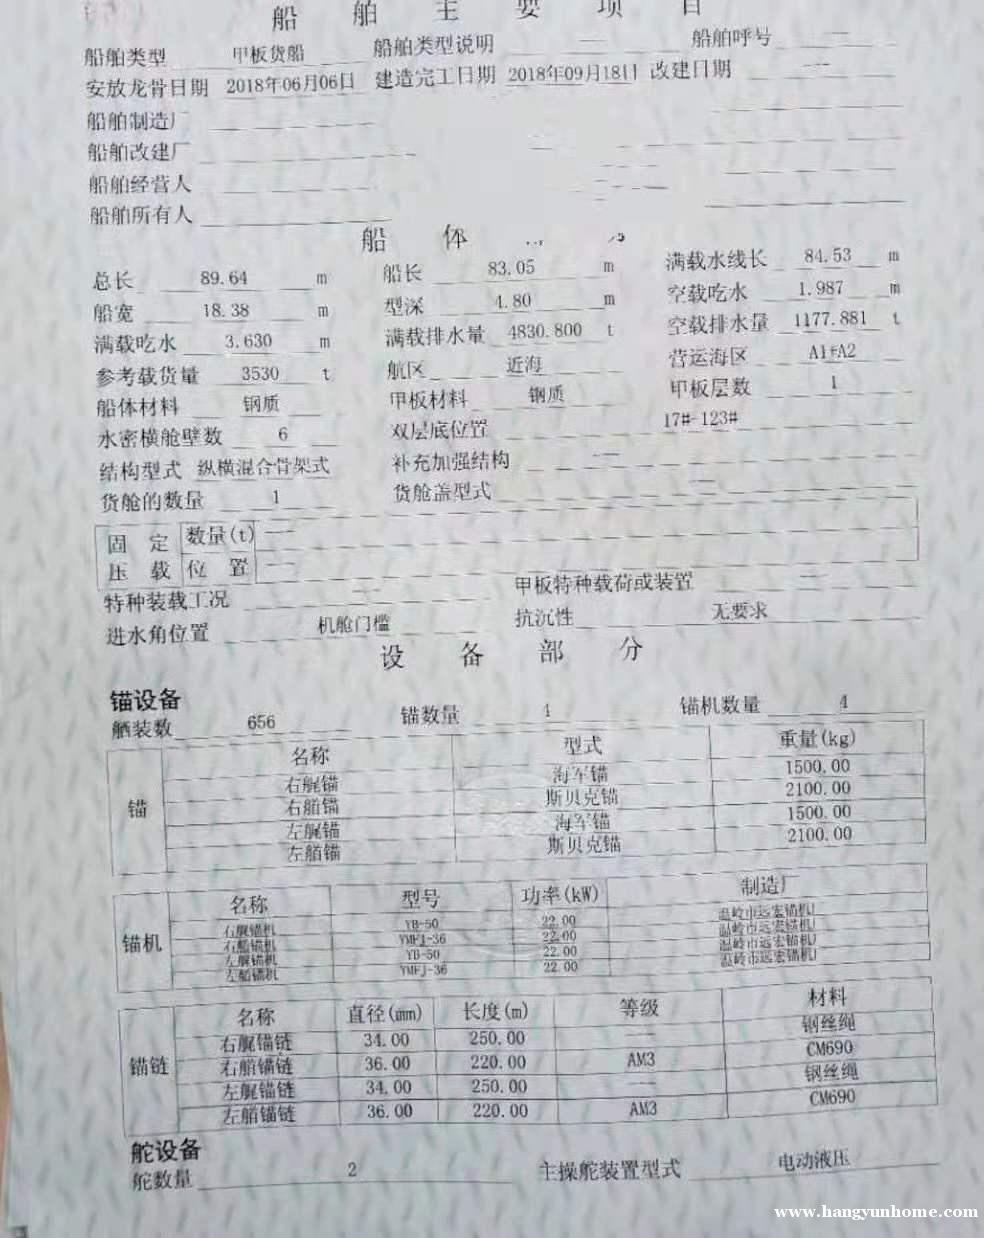 船 舶 主 要 项 目
船舶类型 甲板货船 船舶类型说明 — 船舶呼号 —
安放龙骨日期 2018年06月06日 建造完工日期 2018年09月18日 改建日期 —
船舶制造厂
船舶改建厂
船舶经营人
船舶所有人
船 体
总长 89.64 m 船长 83.05 m 满载水线长 84.53 m
船宽 18.38 m 型深 4.80 m 空载吃水 1.987 m
满载吃水 3.630 m 满载排水量 4830.800 t 空载排水量 1177.881 t
参考载货量 3530 t 航区 近海 营运海区 A1+A2
船体材料 钢质 甲板材料 钢质 甲板层数 1
水密横舱壁数 6 双层底位置 17#-123#
结构型式 纵横混合骨架式 补充加强结构 —
货舱的数量 1 货舱盖型式 —
固 定 数量(t) —
压 载 位 置 —
特种装载工况 — 甲板特种载荷或装置 —
进水角位置 机舱门槛 抗沉性 无要求
设 备 部 分
锚设备
舾装数 656 锚数量 4 锚机数量 4
锚 名称 型式 重量(kg)
右艉锚 海军锚 1500.00
右艏锚 斯贝克锚 2100.00
左艉锚 海军锚 1500.00
左艏锚 斯贝克锚 2100.00
锚机 名称 型号 功率(kW) 制造厂
右艉锚机 YB-50 22.00 温岭市远宏锚机厂
右艏锚机 YMFJ-36 22.00 温岭市远宏锚机厂
左艉锚机 YB-50 22.00 温岭市远宏锚机厂
左艏锚机 YMFJ-36 22.00 温岭市远宏锚机厂
锚链 名称 直径(mm) 长度(m) 等级 材料
右艉锚链 34.00 250.00 — 钢丝绳
右艏锚链 36.00 220.00 AM3 CM690
左艉锚链 34.00 250.00 — 钢丝绳
左艏锚链 36.00 220.00 AM3 CM690
舵设备
舵数量 2 主操舵装置型式 电动液压
www.hangyunhome.com